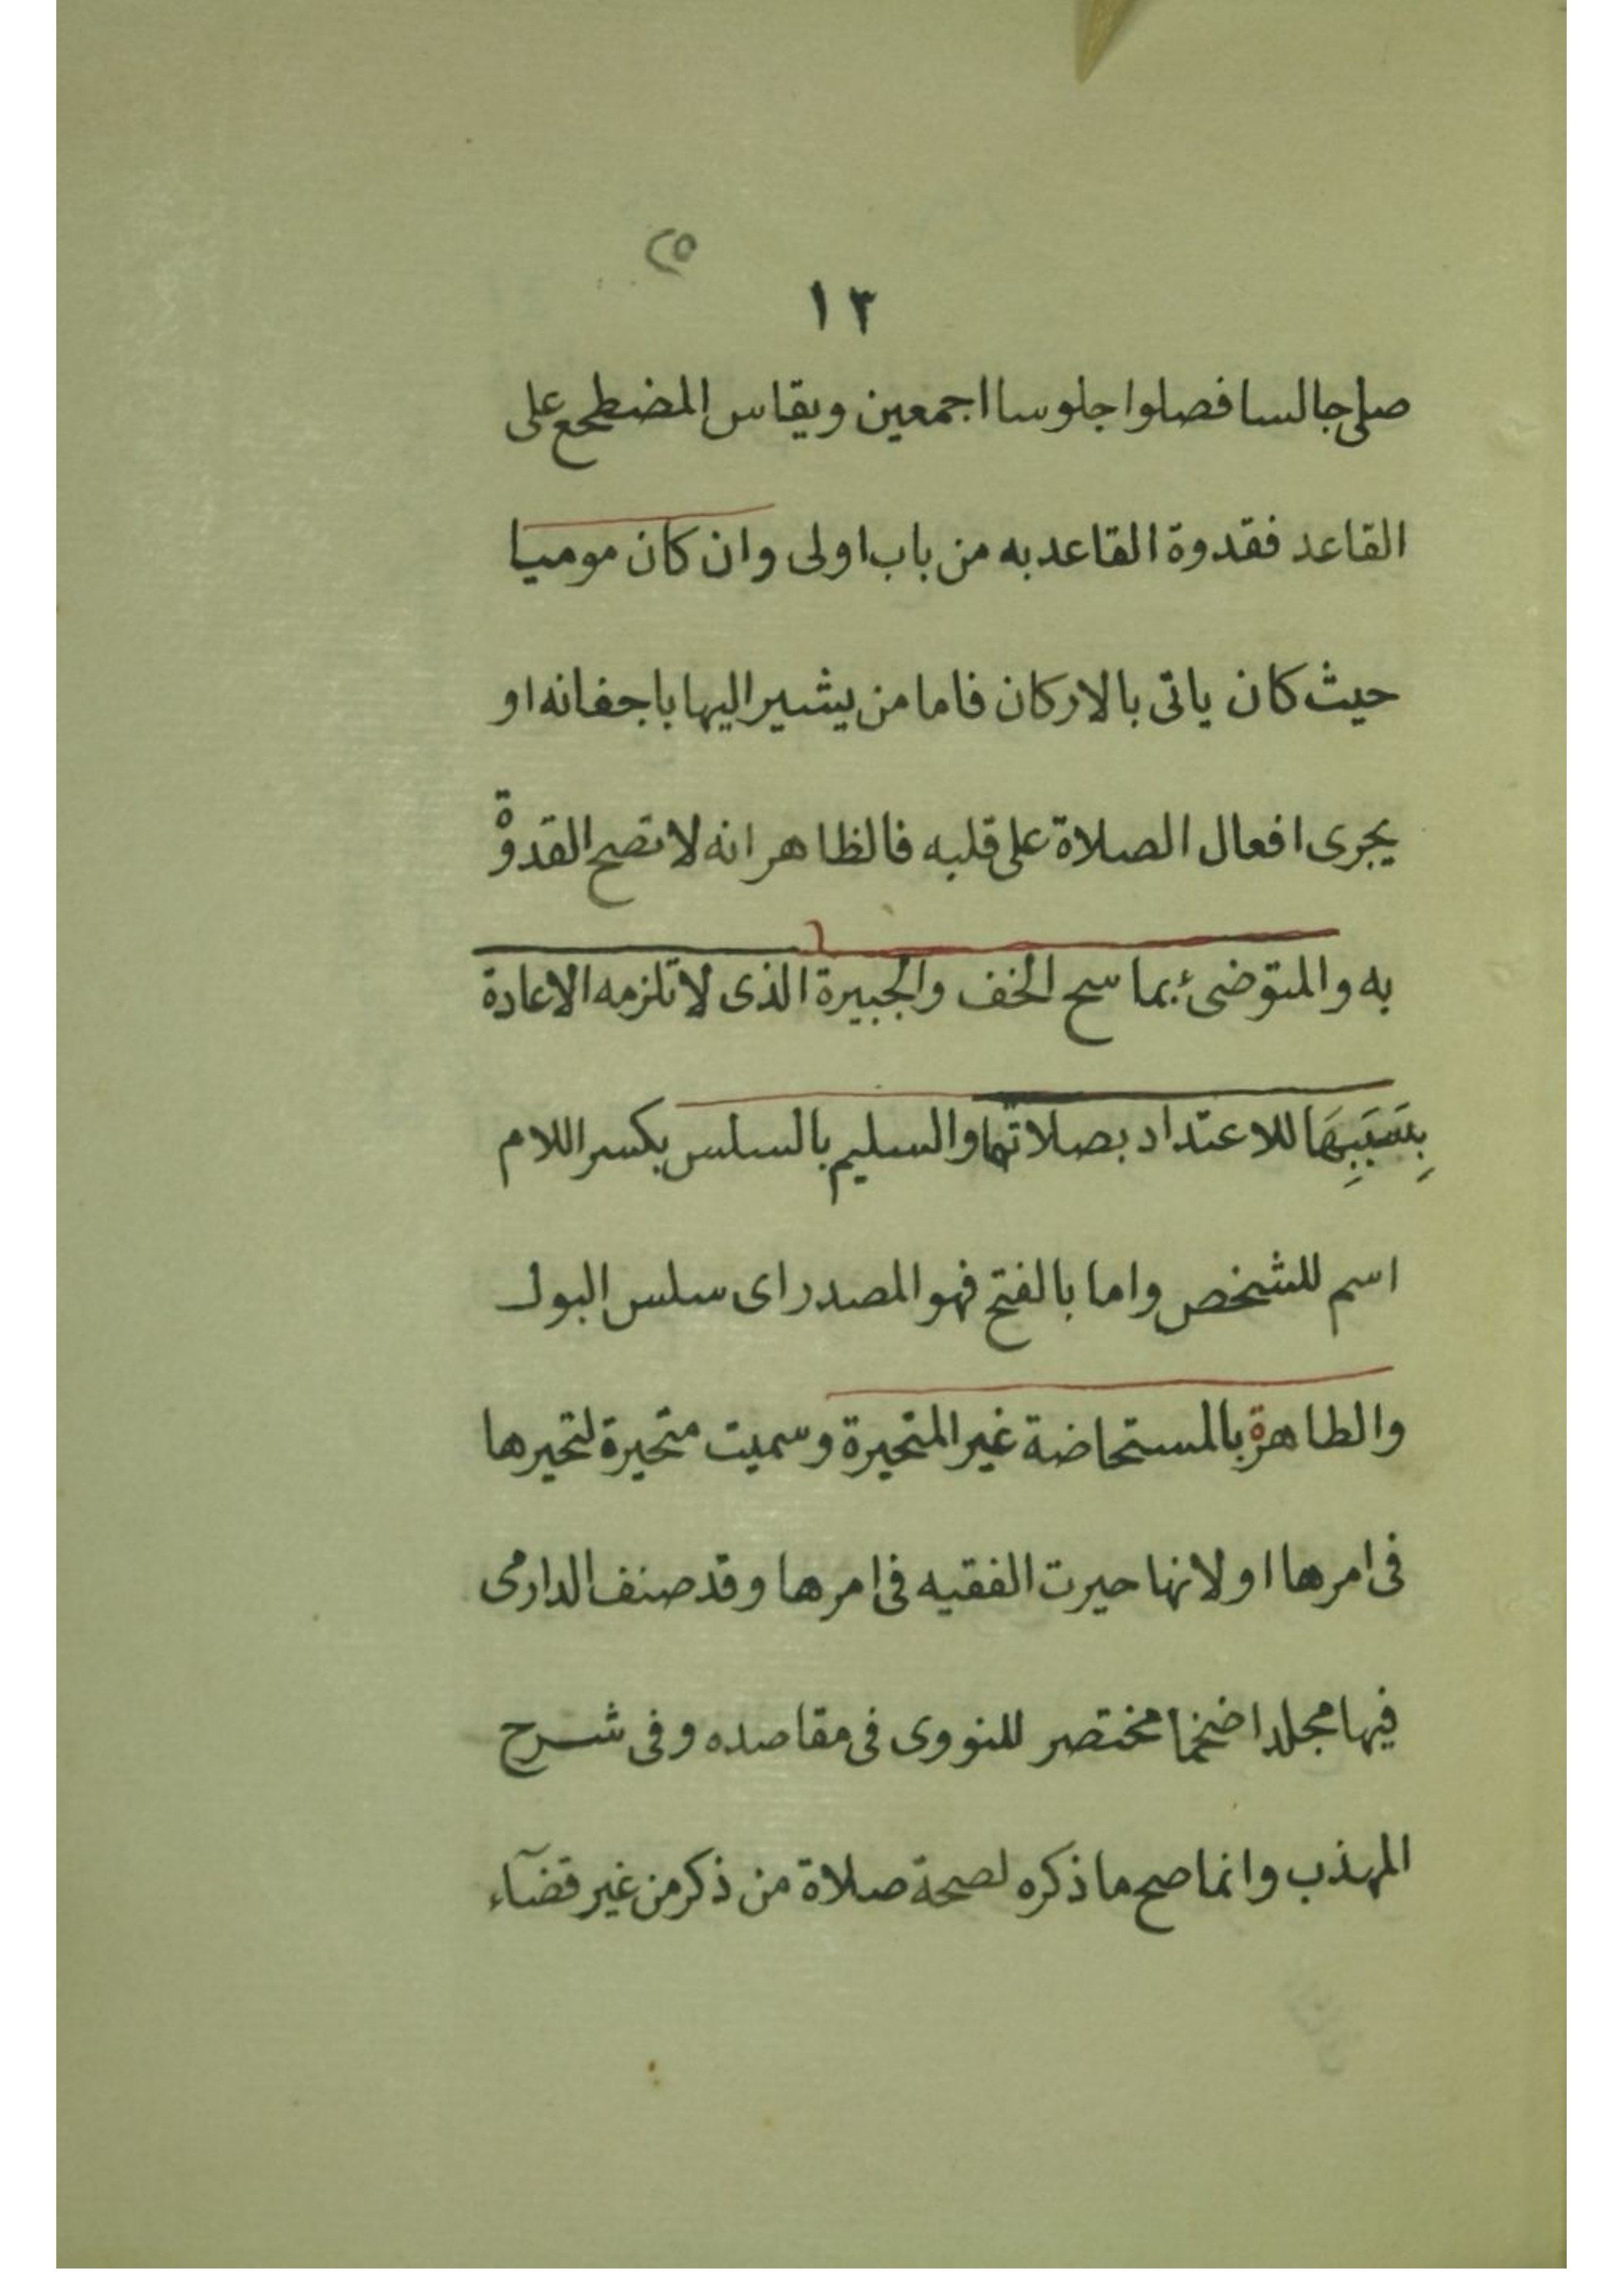 ٢٥
١٣
صلى جالسا فصلوا جلوسا اجمعين ويقاس المضطجع على
القاعد فقدوة القاعد به من باب اولى وان كان موميا
حيث كان ياتى بالاركان فاما من يشير اليها باجفانه او
يجرى افعال الصلاة على قلبه فالظاهر انه لا تصح القدوة
به والمتوضئ بماسح الخف والجبيرة الذى لا تلزمه الاعادة
بِسَبَبِهَا للاعتداد بصلاتهما والسليم بالسلس بكسر اللام
اسم للشخص واما بالفتح فهو المصدر اى سلس البول
والطاهرة بالمستحاضة غير المتحيرة وسميت متحيرة لتحيرها
فى امرها او لانها حيرت الفقيه فى امرها وقد صنف الدارمى
فيها مجلدا ضخما مختصر للنووى فى مقاصده وفى شرح
المهذب وانما صح ما ذكره لصحة صلاة من ذكر من غير قضآء